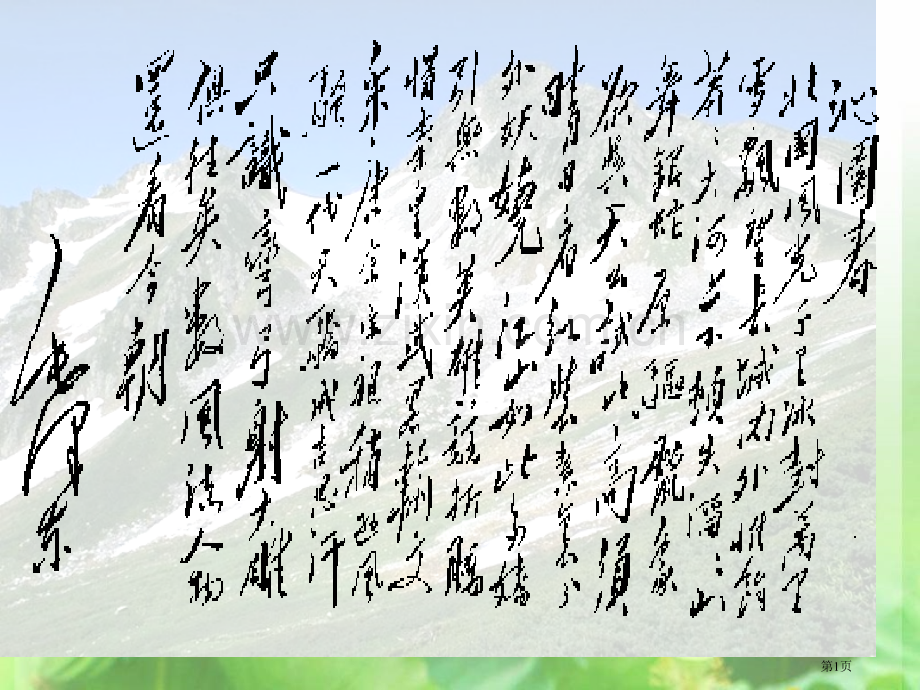 沁園春
北國風光千里冰封萬里
雪飄望長城內外惟餘
莽〻大河上下頓失滔〻山
舞銀蛇原驅臘象
欲與天公試比高須
晴日看紅裝素裹分
外妖嬈江山如此多嬌
引無數英雄競折腰
惜秦皇漢武略輸文
采唐宗宋祖稍遜風
騷一代天驕成吉思汗
只識彎弓射大雕
俱往矣數風流人物
還看今朝
毛澤東
www.zixin.com.cn
第1页